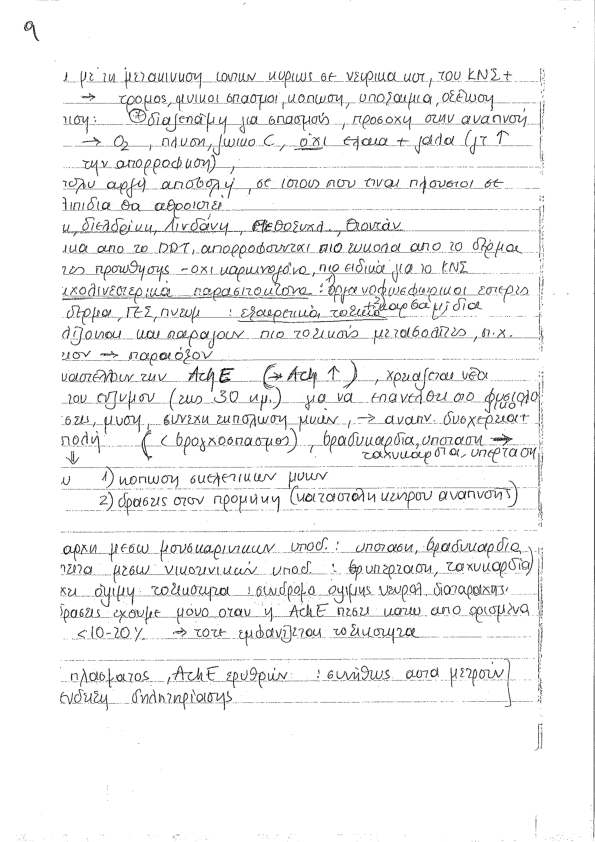 9
ι με τη μετακινηση ιοντων κυριως σε νευρικα κυτ, του ΚΝΣ +
→ τρομος, μυικοι σπασμοι, κοπωση, υποξαιμια, οξεωση
κιση: διαζεπαμη για σπασμούς, προσοχη στην αναπνοή
→ Ο2, πλυση, ζωικο C, όχι ελαια + γαλα (γτ ↑
την απορροφηση),
πολυ αργη αποβολη, σε ιστους που ειναι πλουσιοι σε
λιπιδια θα αθροιστει
κ, διελδρίνη, Λινδάνη, Μεθοξυχλ., Θιοντάν
ικα απο το DDT, απορροφουνται πιο ευκολα απο το δερμα
τες προωθησης - οχι καρκινογόνα, πιο ειδικά για το ΚΝΣ
ιχολινεστερικά παρασιτοκτόνα: οργανοφωσφωρικοι εστερες
+ καρβαμίδια
δερμα, ΓΕΣ, πνευμ : εξαιρετικά τοξικά
λίζονται και παραγουν πιο τοξικούς μεταβολίτες, π.χ.
ιον → παραοξον
ναστελλουν την AchE (→ Ach ↑), χρειαζεται νεα
του ενζυμου (εως 30 ημ.) για να επανελθει στο φυσιολο
γικο
σεις, μυση, συνεχη εκπολωση μυών, → αναπν. δυσχερεια +
πολή (< βρογχοσπασμος), βραδυκαρδια, υποταση →
ταχυκαρδια, υπερταση
↓
υ 1) κοπωση σκελετικων μυων
2) δρασεις στον προμηκη (καταστολη κεντρου αναπνοης)
αρχη μεσω μουσκαρινικων υποδ.: υποταση, βραδυκαρδια
πειτα μεσω νικοτινικών υποδ : υπερταση, ταχυκαρδια
χει όψιμη τοξικοτητα : συνδρομο οψιμης νευρολ διαταραχης.
δρασεις εχουμε μονο οταν η AchE πεσει κατω απο ορισμενα
<10-20% → τοτε εμφανίζεται τοξικοτητα
πλασματος, AchE ερυθρών : συνήθως αυτα μετρούν
ενδειξη δηλητηρίασης